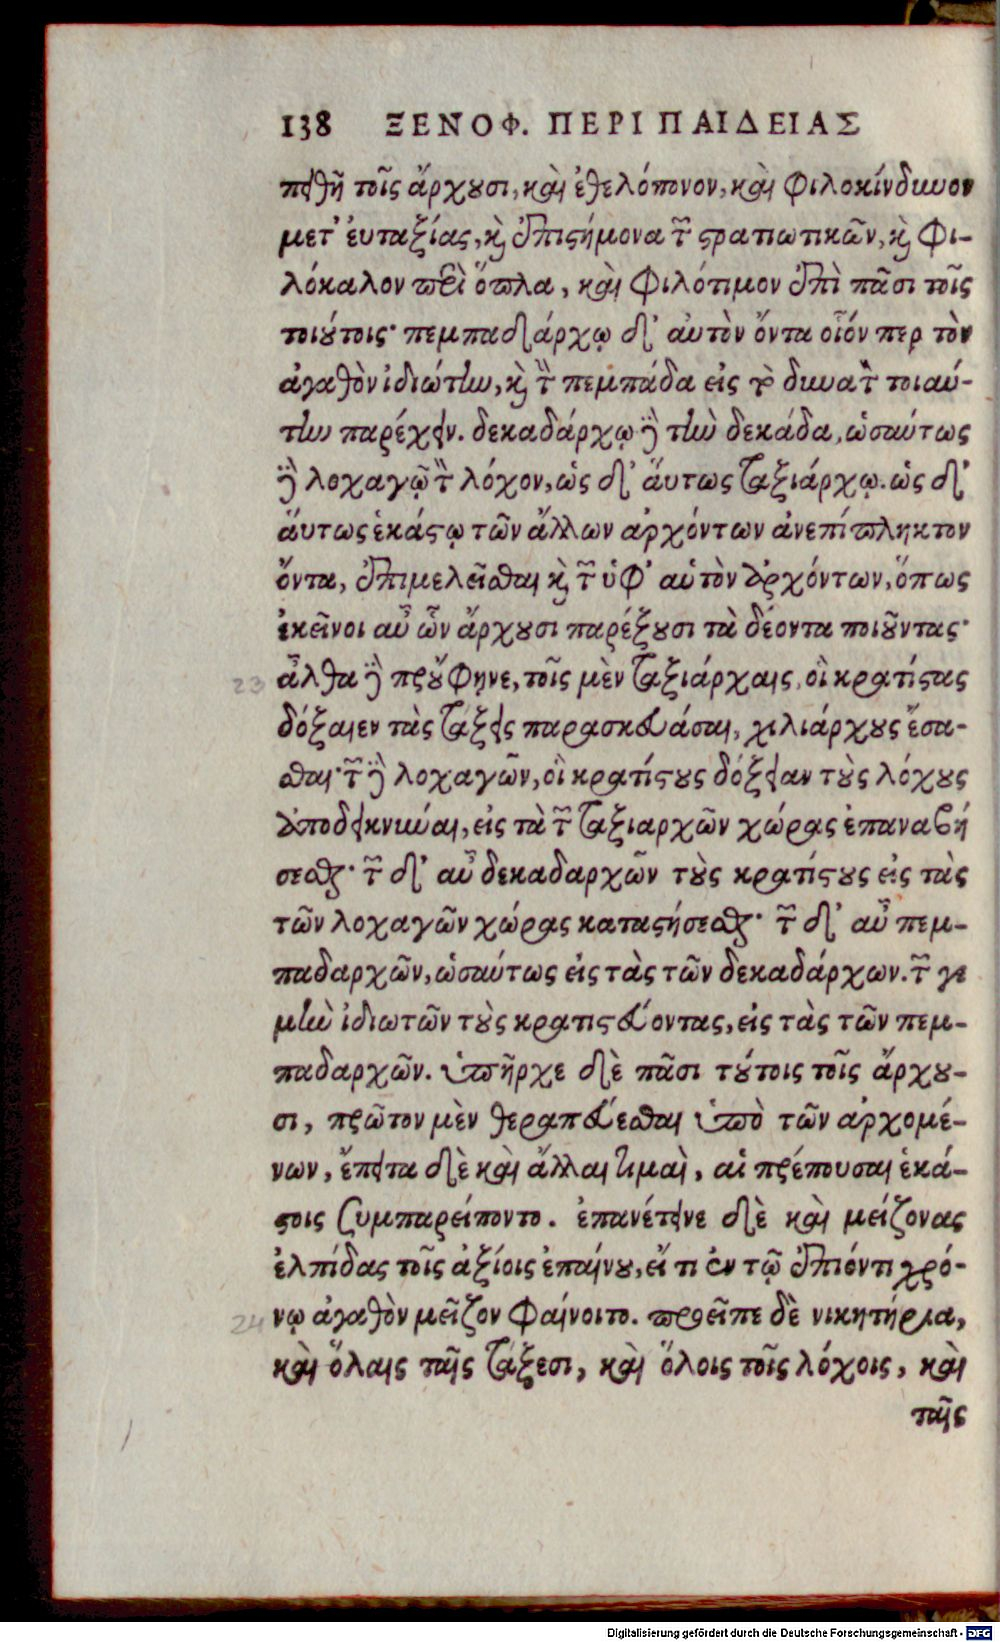 138 ΞΕΝΟΦ. ΠΕΡΙ ΠΑΙΔΕΙΑΣ
πειθῆ τοῖς ἄρχουσι, καὶ ἐθελόπονον, καὶ φιλοκίνδυνον
μετ' εὐταξίας, καὶ ἐπιστήμονα τῶν στρατιωτικῶν, καὶ φι-
λόκαλον περὶ ὅπλα, καὶ φιλότιμον ἐπὶ πᾶσι τοῖς
τοιούτοις· πεμπαδάρχῳ δ' αὐτὸν ὄντα οἷόν περ τὸν
ἀγαθὸν ἰδιώτην, καὶ τὴν πεμπάδα εἰς τὸ δυνατὸν τοιαύ-
την παρέχειν. δεκαδάρχῳ δὲ τὴν δεκάδα, ὡσαύτως
δὲ λοχαγῷ τὸν λόχον, ὡς δ' αὔτως ταξιάρχῳ. ὡς δ'
αὔτως ἑκάστῳ τῶν ἄλλων ἀρχόντων ἀνεπίπληκτον
ὄντα, ἐπιμελεῖσθαι καὶ τῶν ὑφ' αὑτὸν ἀρχόντων, ὅπως
ἐκεῖνοι αὖ ὧν ἄρχουσι παρέξουσι τὰ δέοντα ποιοῦντας·
23 ἆλθα δὲ προὔφηνε, τοῖς μὲν ταξιάρχαις, οἳ κρατίστας
δόξαιεν τὰς τάξεις παρασκευάσαι, χιλιάρχους ἔσε-
σθαι· τῶν δὲ λοχαγῶν, οἳ κρατίστους δόξειαν τοὺς λόχους
ἀποδεικνύναι, εἰς τὰ τῶν ταξιαρχῶν χώρας ἐπαναβή
σεσθαι· τῶν δ' αὖ δεκαδαρχῶν τοὺς κρατίστους εἰς τὰς
τῶν λοχαγῶν χώρας καταστήσεσθαι· τῶν δ' αὖ πεμ-
παδαρχῶν, ὡσαύτως εἰς τὰς τῶν δεκαδάρχων. τῶν γε
μὴν ἰδιωτῶν τοὺς κρατιστεύοντας, εἰς τὰς τῶν πεμ-
παδαρχῶν. ὑπῆρχε δὲ πᾶσι τούτοις τοῖς ἄρχου-
σι, πρῶτον μὲν θεραπεύεσθαι ὑπὸ τῶν ἀρχομέ-
νων, ἔπειτα δὲ καὶ ἄλλαι τιμαὶ, αἱ πρέπουσαι ἑκά-
στοις συμπαρείποντο. ἐπανέτεινε δὲ καὶ μείζονας
ἐλπίδας τοῖς ἀξίοις ἐπαίνου, εἴ τι ἐν τῷ ἐπιόντι χρό-
24 νῳ ἀγαθὸν μεῖζον φαίνοιτο. προεῖπε δὲ νικητήρια,
καὶ ὅλαις ταῖς τάξεσι, καὶ ὅλοις τοῖς λόχοις, καὶ
ταῖς
Digitalisierung gefördert durch die Deutsche Forschungsgemeinschaft - DFG